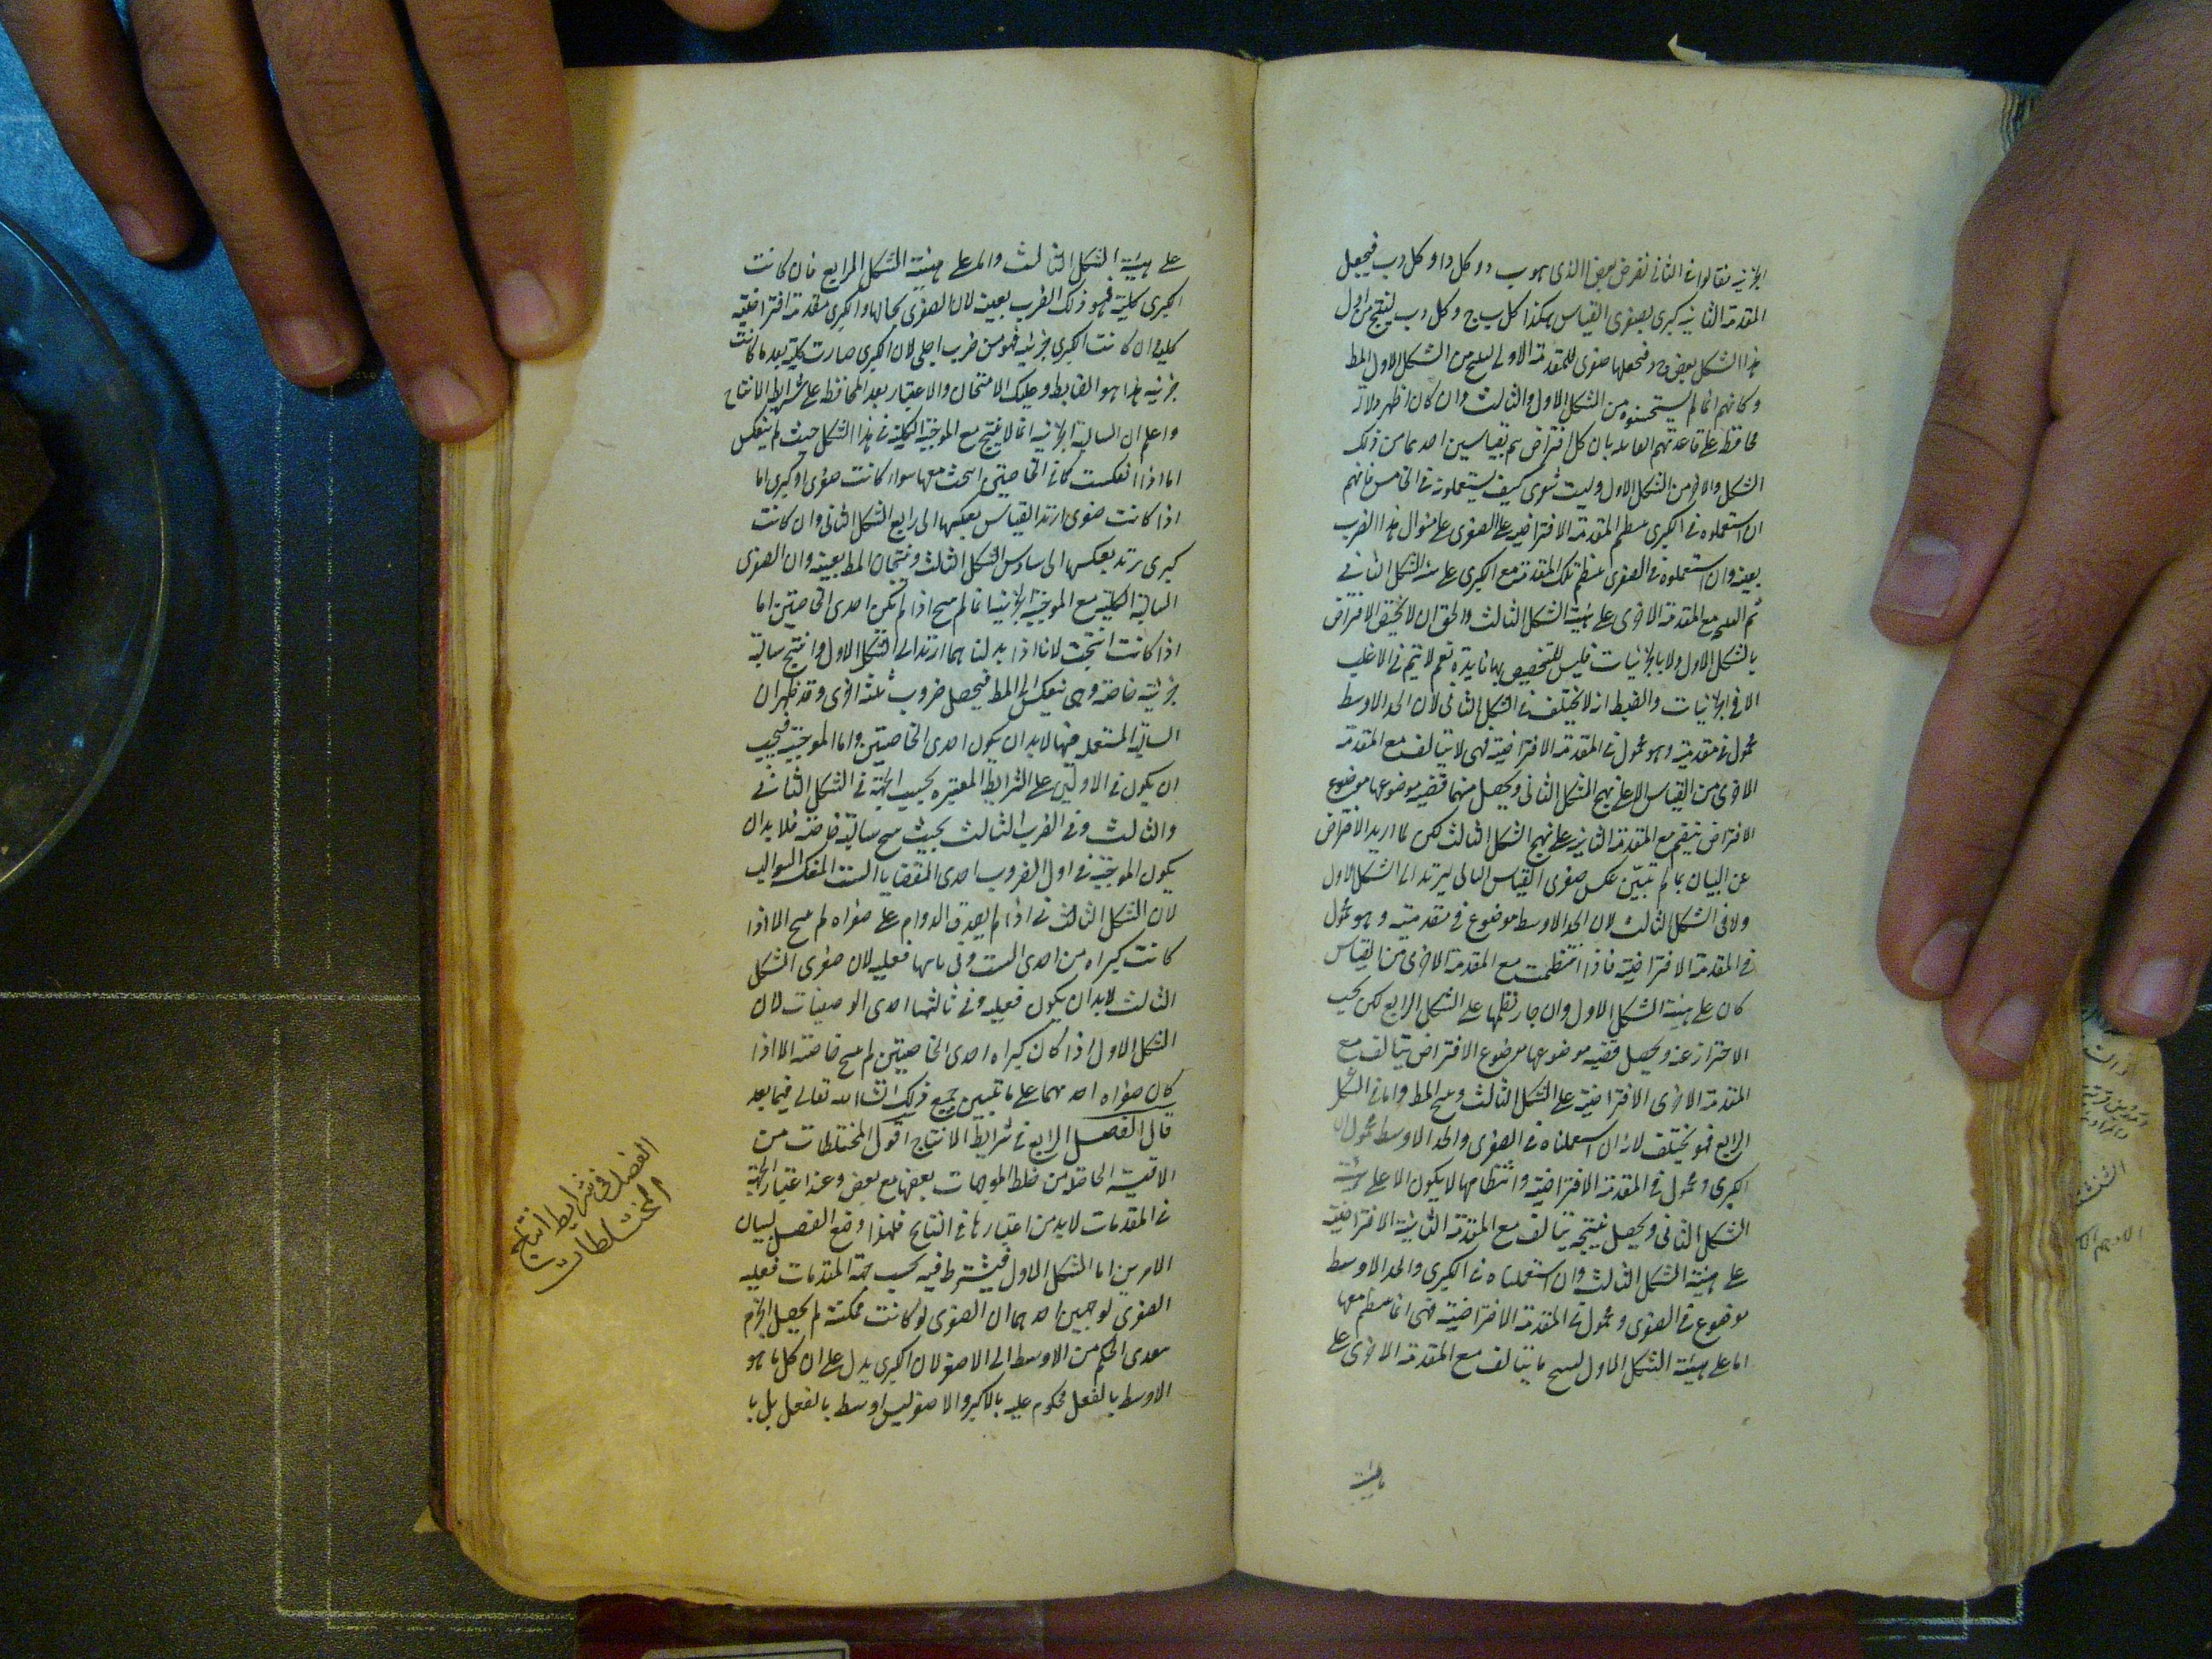 الجزئية فقالوا في الثاني نفرض بعض الذي هو ب د وكل د ا وكل د ب فيجعل
المقدمة الثانية كبرى بصغرى القياس هكذا كل ب ج وكل د ب لينتج من اول
هذا الشكل بعض ج د ونجعلها صغرى للمقدمة الاولى لينتج من الشكل الاول المط
وكانهم انما لم يستحسنوه من الشكل الاول والثالث وان كان اظهر دلالة
محافظة على قاعدتهم القايلة بان كل افتراض يتم بقياسين احدهما من ذلك
الشكل والاخر من الشكل الاول وليت شعري كيف يستعملونه في الخامس فانهم
ان استعملوه في الكبرى ينتظم المقدمة الافتراضية على الصغرى على منوال هذا الضرب
بعينه وان استعملوه في الصغرى ينتظم تلك المقدمة مع الكبرى على هيئة الشكل الثاني
ثم النتيجة مع المقدمة الاخرى على هيئة الشكل الثالث والحق ان لا يختص الافتراض
بالشكل الاول ولا بالجزئيات فليس للتخصيص بها فايدة نعم لا يتم في الاغلب
الا في الجزئيات والضبط انه لا يختلف في الشكل الثاني لان الحد الاوسط
محمول في مقدمتيه وهو محمول في المقدمة الافتراضية فهي لا يتالف مع المقدمة
الاخرى من القياس الا على نهج الشكل الثاني ويحصل منهما قضية موضوعها موضوع
الافتراض ينتظم مع المقدمة الثانية على نهج الشكل الثالث لكن لما اريد الاحتراض
عن البيان بما لم تبيّن عكس صغرى القياس التالي ليرتد الى الشكل الاول
ولا في الشكل الثالث لان الحد الاوسط موضوع في مقدمتيه وهو محمول
في المقدمة الافتراضية فاذا انتظمت مع المقدمة الاخرى من القياس
كان على هيئة الشكل الاول وان جاز نظمها على الشكل الرابع لكن يجب
الاحتراز عنه ويحصل قضية موضوعها موضوع الافتراض يتالف مع
المقدمة الاخرى الافتراضية على الشكل الثالث وينتج المط واما في الشكل
الرابع فهو يختلف لانه ان استعملناه في الصغرى والحد الاوسط محمول
الكبرى ومحمول في المقدمة الافتراضية وانتظامها لا يكون الا على هيئة
الشكل الثاني ويحصل نتيجة يتالف مع المقدمة الثانية الافتراضية
على هيئة الشكل الثالث وان استعملناه في الكبرى والحد الاوسط
موضوع في الصغرى ومحمول في المقدمة الافتراضية فهي انما ينتظم معها
اما على هيئة الشكل الاول لينتج ما يتالف مع المقدمة الاخرى على
على هيئة الشكل الثالث واما على هيئة الشكل الرابع فان كانت
الكبرى كلية فهو ذلك الضرب بعينه لان الصغرى بحالها والكبرى مقدمة افتراضية
كلية وان كانت الكبرى جزئية فهو من ضرب اجلى لان الكبرى صارت كلية بعد ما كانت
جزئية هذا هو الضابط وعليك الامتحان والاعتبار بعد المحافظة على شرايط الانتاج
واعلم ان السالبة الجزئية انما لا ينتج مع الموجبة الكلية في هذا الشكل حيث لم ينعكس
اما اذا انعكست كما في الخاصتين انتجت معها سواء كانت صغرى او كبرى اما
اذا كانت صغرى ارتد القياس بعكسها الى رابع الشكل الثاني وان كانت
كبرى يرتد بعكسها الى سادس الشكل الثالث وينتجان المط بعينه وان الصغرى
السالبة الكلية مع الموجبة الجزئية انما لم ينتج اذا لم تكن احدى الخاصتين اما
اذا كانت انتجت لانا اذا بدلناهما ارتد الى الشكل الاول وانتج سالبة
جزئية خاصة وهي تنعكس الى المط فيحصل ضروب ثلثة اخرى وقد ظهر ان
السالبة المستعملة فيها لا بد ان يكون احدى الخاصتين واما الموجبة فيجب
ان يكون في الاوليين على الشرايط المعتبرة بحسب الجهة في الشكل الثاني
والثالث وفي الضرب الثالث بحيث ينتج سالبة خاصة فلا بد ان
يكون الموجبة في اول الضروب احدى القضايا الست المنعكسة السوالب
لان الشكل الثاني اذا لم يصدق الدوام على صغراه لم ينتج الا اذا
كانت كبراه من احدى الست وفي ثانيها فعلية لان صغرى الشكل
الثالث لا بد ان يكون فعلية وفي ثالثها احدى الوصفيات لان
الشكل الاول اذا كان كبراه احدى الخاصتين لم ينتج خاصة الا اذا
كان صغراه احديهما على ما تبيين جميع ذلك انشاء الله تعالى فيما بعد
قال الفصل الرابع في شرايط الانتاج اقول المختلطات من
الاقيسة الحاصلة من خلط الموجهات بعضها مع بعض وعند اعتبار الجهة
في المقدمات لا بد من اعتبارها في النتايج فلهذا وضع الفصل لبيان
الامرين اما الشكل الاول فيشترط فيه بحسب جهة المقدمات فعلية
الصغرى لوجهين احدهما ان الصغرى لو كانت ممكنة لم يحصل الجزم
بتعدي الحكم من الاوسط الى الاصغر لان الكبرى يدل على ان كل ما هو
الاوسط بالفعل محكوم عليه بالاكبر والاصغر ليس اوسط بالفعل بل با
الفصل في شرايط انتاج
المختلطات